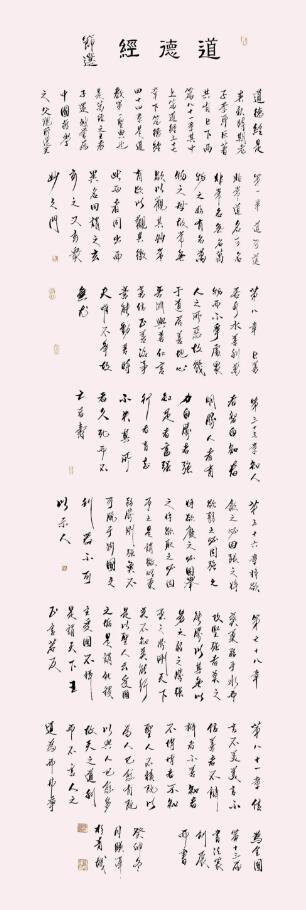 道德經
節選
道德經是
春秋時期老
子李耳所著
共有上下兩
篇八十一章其中
上篇道經三十七
章下篇德經
四十四章是道
教第一聖典也
是萬經之王老
子還被譽為
中國哲學
之父現節選文
第一章 道可道
非常道名可名
非常名無名萬
物之始有名萬
物之母故常無
欲以觀其妙常
有欲以觀其徼
此兩者同出而
異名同謂之玄
玄之又玄衆
妙之門
第八章 上善
若水水善利萬
物而不爭處衆
人之所惡故幾
于道居善地心
善淵與善仁言
善信正善治事
善能動善時
夫唯不爭故
無尤
第三十三章知人
者智自知者
明勝人者有
力自勝者強
知足者富強
行者有志
不失其所
者久死而不
亡者壽
第三十六章將欲
歙之必固張之將
欲弱之必固強之
將欲廢之必固舉
之將欲取之必固
與之是謂微明柔
弱勝剛強魚不
可脫于淵國之
利器不可
以示人
第七十八章
莫柔弱于水而
攻堅強者莫之
能勝以其無以
易之弱之勝強
柔之勝剛天下
莫不知莫能行
是以聖人云受國
之垢是謂社稷
主受國不祥
是謂天下王
正言若反
第八十一章信
言不美美言不
信善者不辯
辯者不善知者
不博博者不知
聖人不積既以
為人己愈有既
以與人己愈多
故天之道利
而不害人之
道為而弗爭
為全國
第十三屆
書法篆
刻展
而書
癸卯年